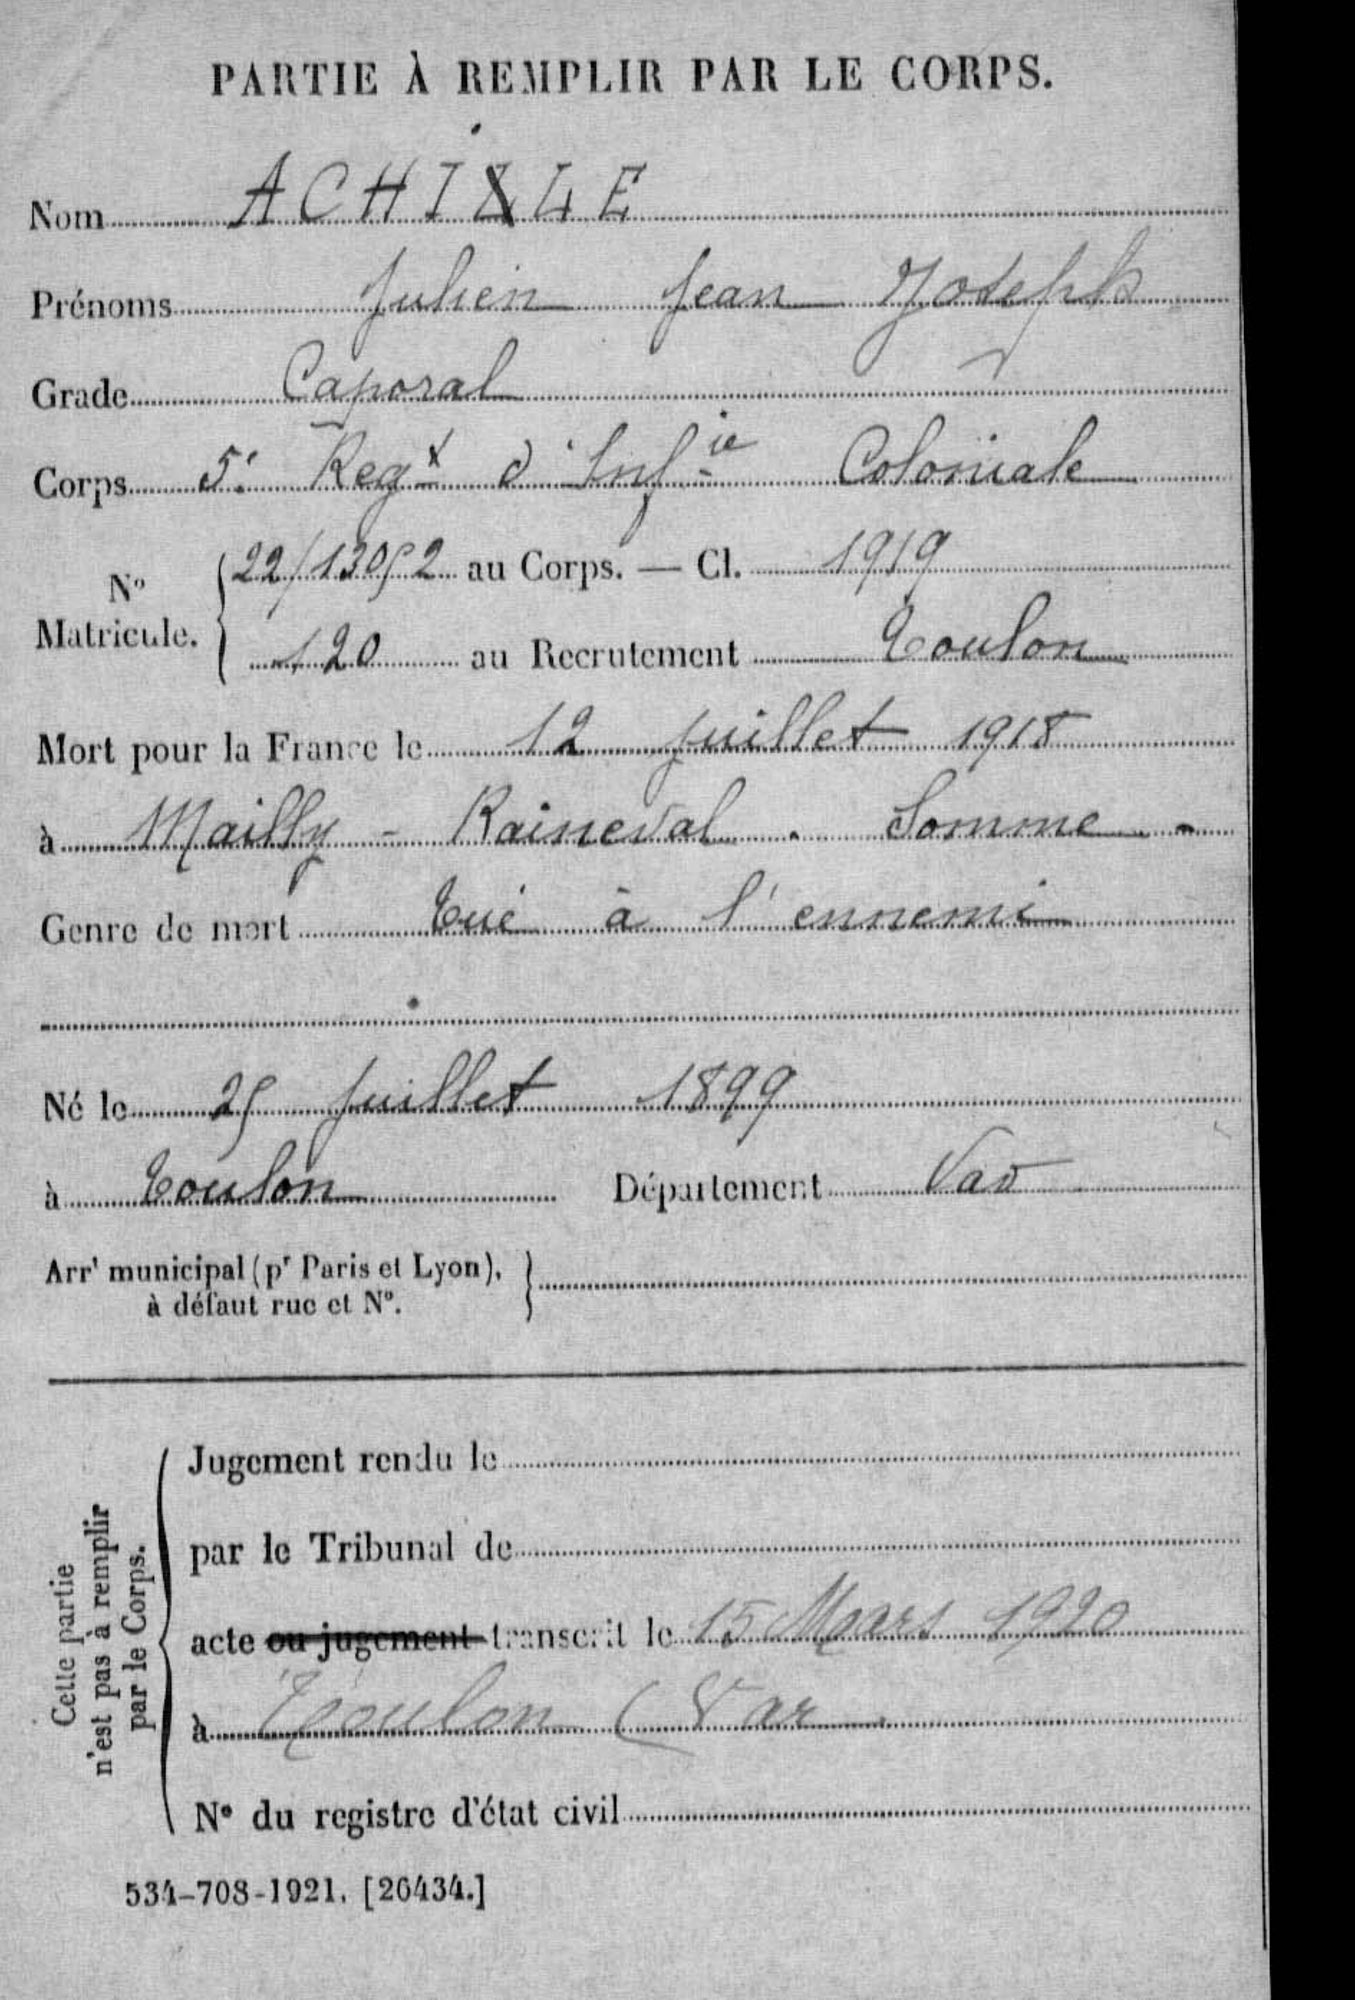 PARTIE À REMPLIR PAR LE CORPS.
Nom ACHILE
Prénoms Julien Jean Joseph
Grade Caporal
Corps 5e Regt d'Infie Coloniale
No Matricule. 22/13052 au Corps. — Cl. 1919
120 au Recrutement Toulon
Mort pour la France le 12 juillet 1918
à Mailly - Raineval . Somme -
Genre de mort Tué à l'ennemi
Né le 25 juillet 1899
à Toulon Département Var
Arrt municipal (pr Paris et Lyon),
à défaut rue et No.
Cette partie
n'est pas à remplir
par le Corps.
Jugement rendu le
par le Tribunal de
acte ou jugement transcrit le 15 Mars 1920
à Toulon (Var
No du registre d'état civil
534-708-1921. [26434.]